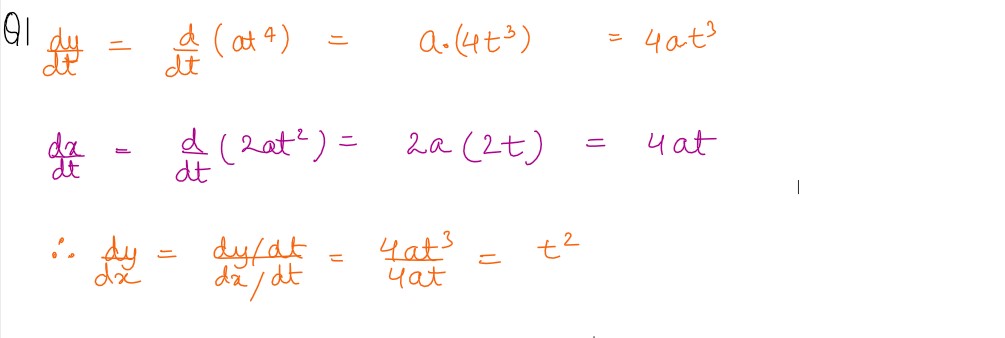 Q1 dy/dt = d/dt (at⁴) = a.(4t³) = 4at³
dx/dt = d/dt (2at²) = 2a(2t) = 4at
∴ dy/dx = (dy/dt)/(dx/dt) = 4at³/4at = t²